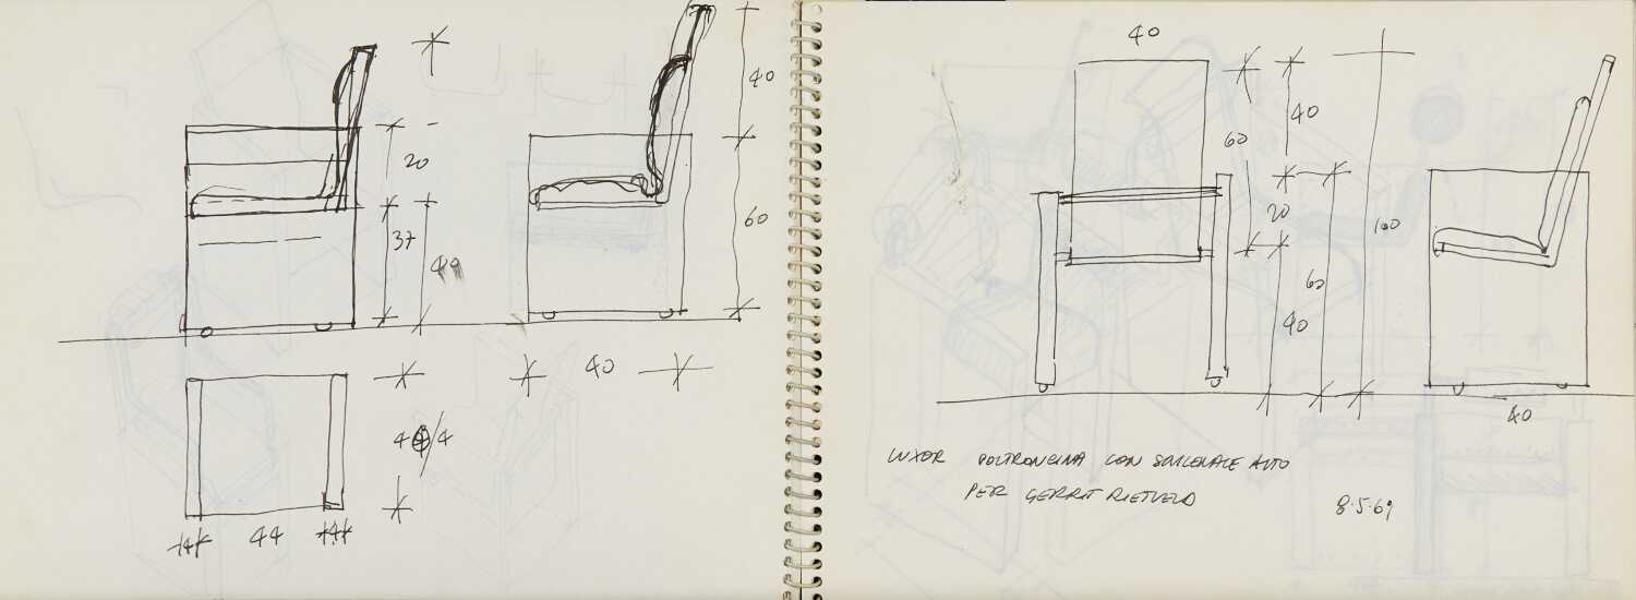 20
37
40
60
40
44
40
60
40
20
100
60
40
40
LUXOR POLTRONCINA CON SCHIENALE ALTO
PER GERRIT RIETVELD
8.5.69